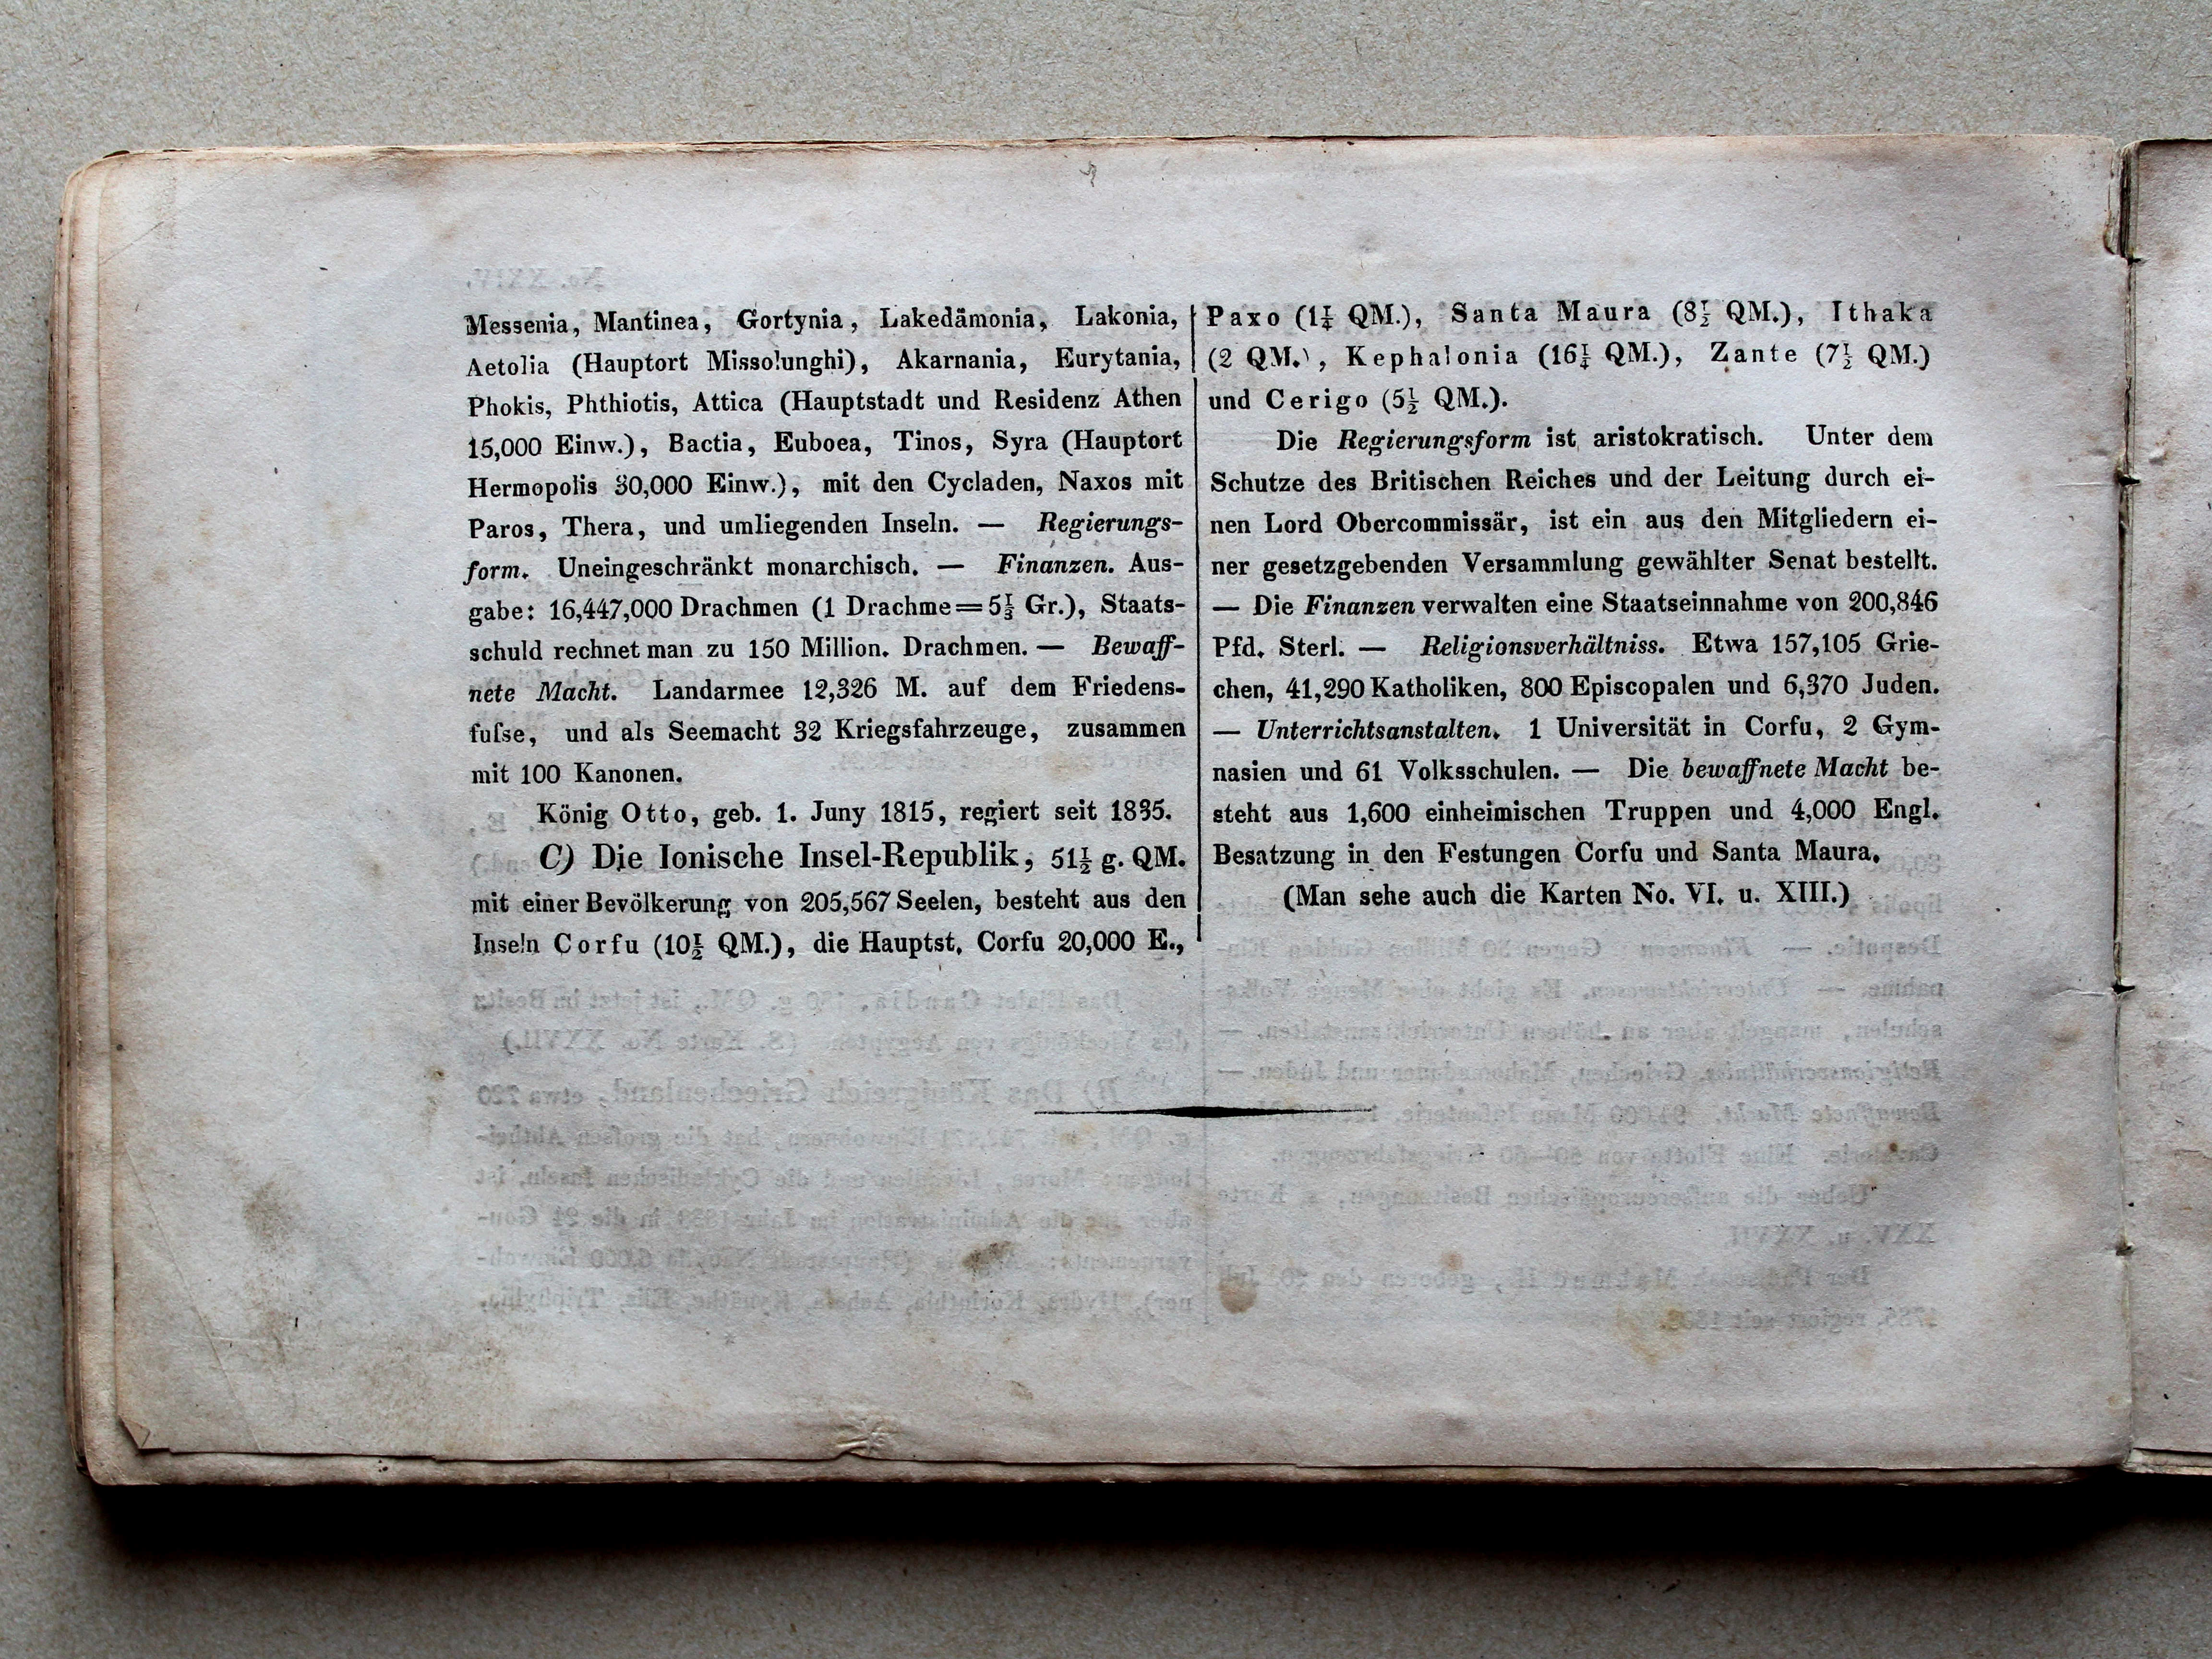 Messenia, Mantinea, Gortynia, Lakedämonia, Lakonia,
Aetolia (Hauptort Missolunghi), Akarnania, Eurytania,
Phokis, Phthiotis, Attica (Hauptstadt und Residenz Athen
15,000 Einw.), Bactia, Euboea, Tinos, Syra (Hauptort
Hermopolis 30,000 Einw.), mit den Cycladen, Naxos mit
Paros, Thera, und umliegenden Inseln. — Regierungs-
form. Uneingeschränkt monarchisch. — Finanzen. Aus-
gabe: 16,447,000 Drachmen (1 Drachme=5⅓ Gr.), Staats-
schuld rechnet man zu 150 Million. Drachmen. — Bewaff-
nete Macht. Landarmee 12,326 M. auf dem Friedens-
fuſse, und als Seemacht 32 Kriegsfahrzeuge, zusammen
mit 100 Kanonen.
König Otto, geb. 1. Juny 1815, regiert seit 1835.
C) Die Ionische Insel-Republik, 51½ g. QM.
mit einer Bevölkerung von 205,567 Seelen, besteht aus den
Inseln Corfu (10½ QM.), die Hauptst. Corfu 20,000 E.,
Paxo (1¼ QM.), Santa Maura (8½ QM.), Ithaka
(2 QM.), Kephalonia (16¼ QM.), Zante (7½ QM.)
und Cerigo (5½ QM.).
Die Regierungsform ist aristokratisch. Unter dem
Schutze des Britischen Reiches und der Leitung durch ei-
nen Lord Obercommissär, ist ein aus den Mitgliedern ei-
ner gesetzgebenden Versammlung gewählter Senat bestellt.
— Die Finanzen verwalten eine Staatseinnahme von 200,846
Pfd. Sterl. — Religionsverhältniss. Etwa 157,105 Grie-
chen, 41,290 Katholiken, 800 Episcopalen und 6,370 Juden.
— Unterrichtsanstalten. 1 Universität in Corfu, 2 Gym-
nasien und 61 Volksschulen. — Die bewaffnete Macht be-
steht aus 1,600 einheimischen Truppen und 4,000 Engl.
Besatzung in den Festungen Corfu und Santa Maura.
(Man sehe auch die Karten No. VI. u. XIII.)